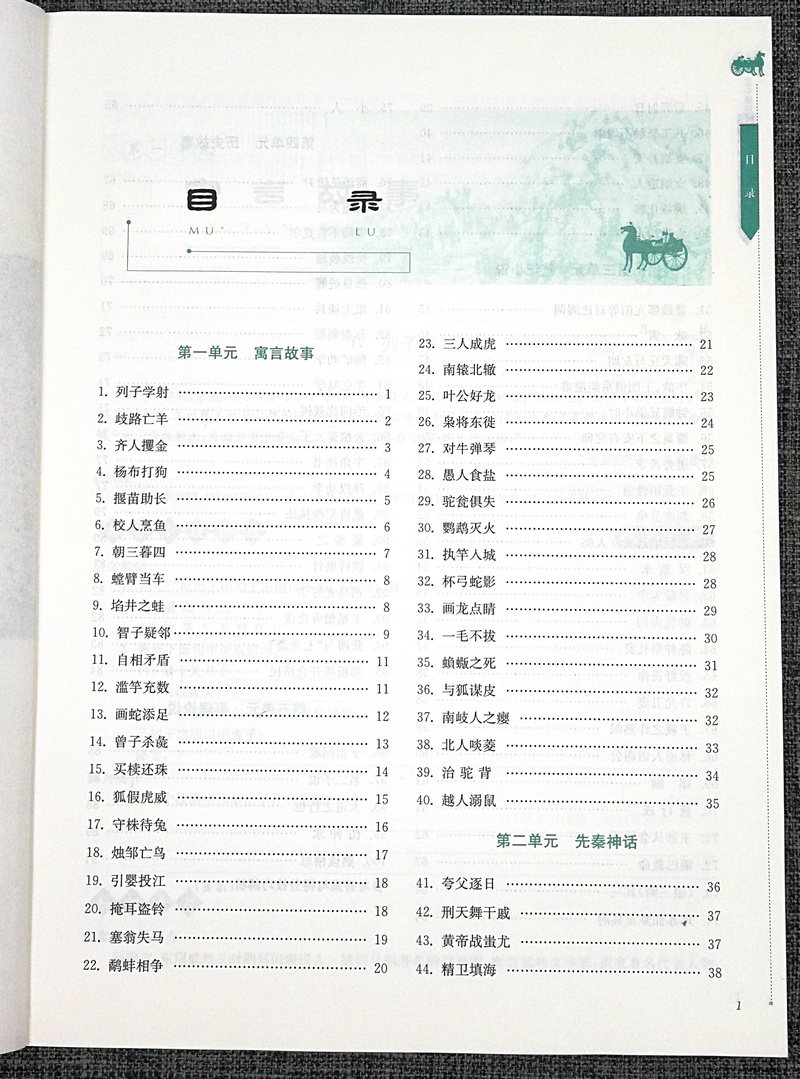 目录
目 录
MU LU
第一单元 寓言故事
1. 列子学射 1
2. 歧路亡羊 2
3. 齐人攫金 3
4. 杨布打狗 4
5. 揠苗助长 5
6. 校人烹鱼 6
7. 朝三暮四 7
8. 螳臂当车 8
9. 埳井之蛙 8
10. 智子疑邻 9
11. 自相矛盾 11
12. 滥竽充数 11
13. 画蛇添足 12
14. 曾子杀彘 13
15. 买椟还珠 14
16. 狐假虎威 15
17. 守株待兔 16
18. 烛邹亡鸟 17
19. 引婴投江 18
20. 掩耳盗铃 18
21. 塞翁失马 19
22. 鹬蚌相争 20
23. 三人成虎 21
24. 南辕北辙 22
25. 叶公好龙 23
26. 枭将东徙 24
27. 对牛弹琴 25
28. 愚人食盐 25
29. 驼瓮俱失 26
30. 鹦鹉灭火 27
31. 执竿入城 28
32. 杯弓蛇影 28
33. 画龙点睛 29
34. 一毛不拔 30
35. 蝜蝂之死 31
36. 与狐谋皮 32
37. 南岐人之瘿 32
38. 北人啖菱 33
39. 治驼背 34
40. 越人溺鼠 35
第二单元 先秦神话
41. 夸父逐日 36
42. 刑天舞干戚 37
43. 黄帝战蚩尤 37
44. 精卫填海 38
1